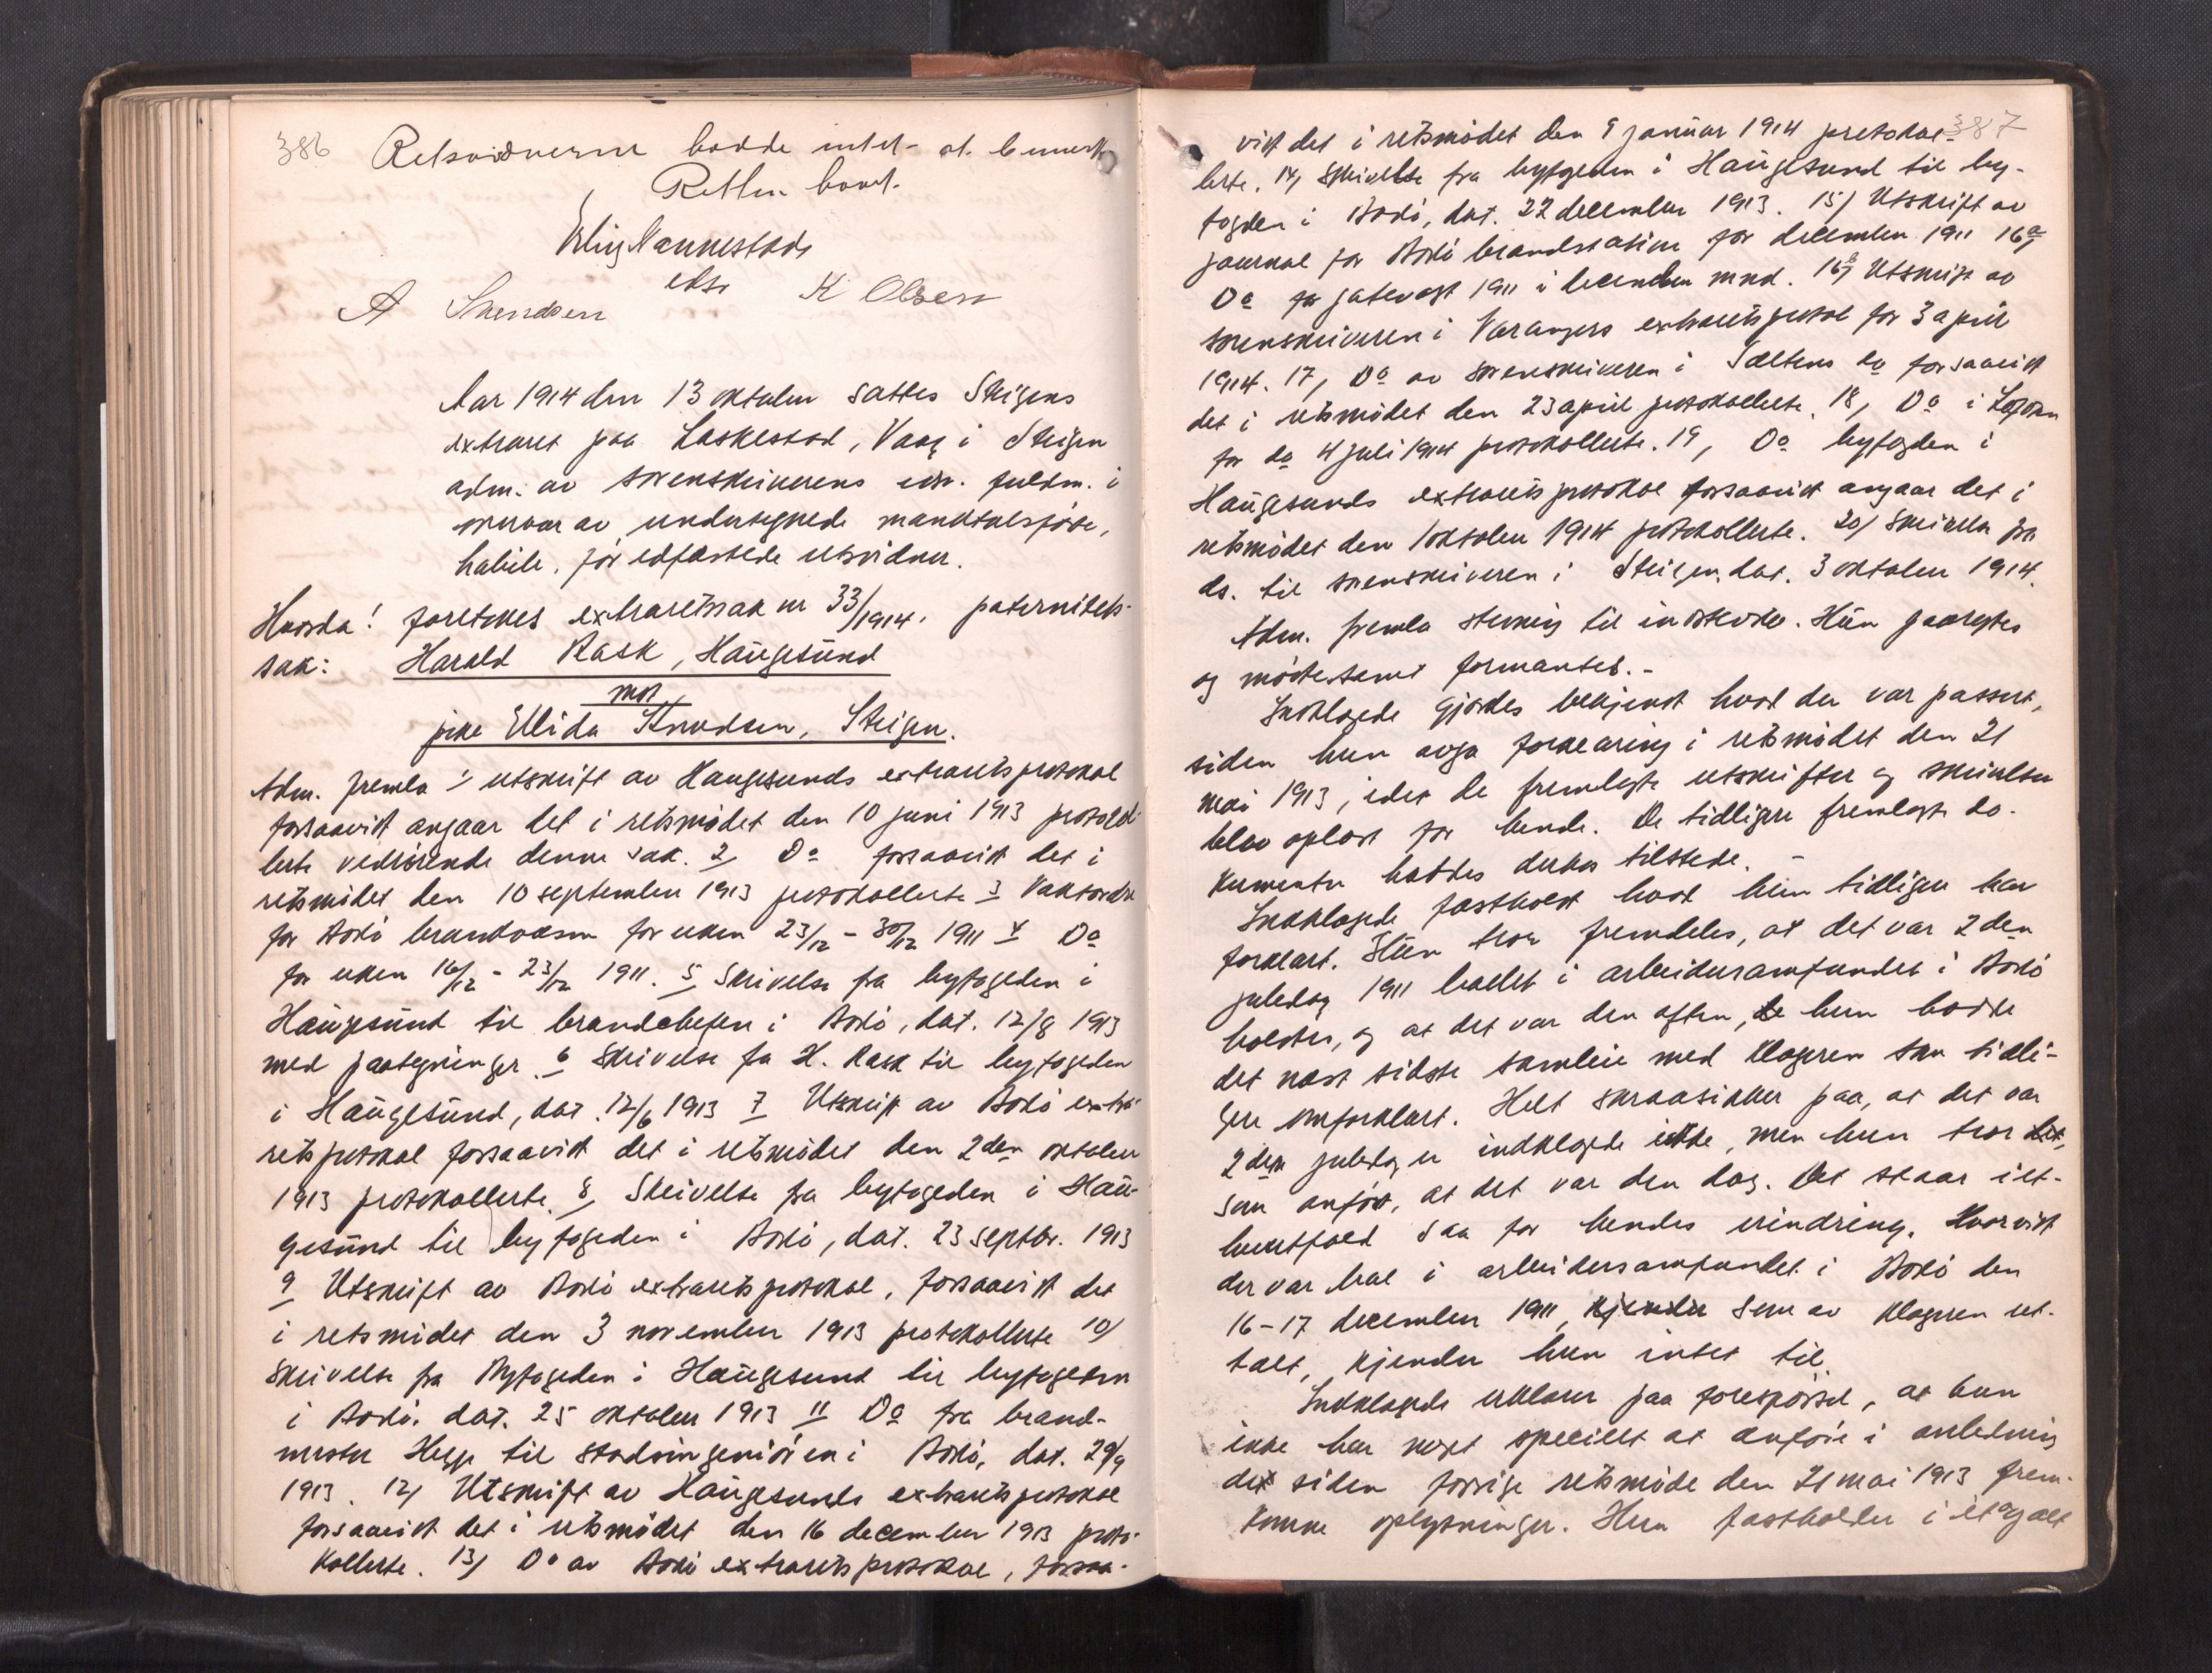 386
Retsvidnerne hadde intet at bemerke
Retten hævet.
Erling Nannestad
eksr
A Svendsen K Olsen
Aar 1914 den 13 oktober sattes Steigens
extraret paa Laskestad, Vaag i Steigen
adm. av sorenskriverens edsv. fuldm. i
overvær av undertegnede mandtalsførte,
habile, før edfæstede retsvidner.
Hvorda! foretokes extraretssak nr 33/1914. paternitets-
sak: Harald Rask, Haugesund
mot
pike Ellida Knudsen, Steigen.
Adm. fremla 1/ utskrift av Haugesunds extraretsprotokol
forsaavidt angaar det i retsmødet den 10 juni 1913 protokol-
lerte vedrørende denne sak. 2/ Do forsaavidt det i
retsmødet den 10 september 1913 protokollerte 3/ Vaktordre
for Bodø brandvæsen for uken 23/12 - 30/12 1911 4/ Do
for uken 16/12 - 23/12 1911. 5/ Skrivelse fra byfogeden i
Haugesund til brandchefen i Bodø, dat. 12/8 1913
med paategninger. 6/ Skrivelse fra H. Rask til byfogeden
i Haugesund, dat. 12/6 1913 7/ Utskrift av Bodø extra-
retsprotokol forsaavidt det i retsmødet den 2den oktober
1913 protokollerte. 8/ Skrivelse fra byfogeden i Hau-
gesund til byfogeden i Bodø, dat. 23 septbr. 1913
9/ Utskrift av Bodø extraretsprotokol, forsaavidt det
i retsmødet den 3 november 1913 protokollerte 10/
Skrivelse fra Byfogeden i Haugesund til byfogeden
i Bodø. dat. 25 oktober 1913 11/ Do fra brand-
mester Hegge til stadsingeniøren i Bodø, dat. 29/9
1913. 12/ Utskrift av Haugesunds extraretsprotokol
forsaavidt det i retsmødet den 16 december 1913 proto-
kollerte. 13/ Do av Bodø extraretsprotokol, forsaa-
387
vidt det i retsmødet den 9 januar 1914 protokol-
lerte. 14/ Skrivelse fra byfogden i Haugesund til by-
fogden i Bodø, dat. 22 december 1913. 15/ Utskrift av
journal for Bodø brandstation for december 1911 16a/
Do for gatevagt 1911 i december mnd. 16b/ Utskrift av
sorenskriveren i Varangers extraretsprotokol for 3 april
1914. 17/ Do av sorenskriveren i Saltens do forsaavidt
det i retsmødet den 23 april protokollerte. 18/ Do i Lofoten
for do 4 juli 1914 protokollerte. 19/ Do byfogden i
Haugesunds extraretsprotokol forsaavidt angaar det i
retsmødet den 1 oktober 1914 protokollerte. 20/ Skrivelse fra
ds. til sorenskriveren i Steigen, dat. 3 oktober 1914.
Adm. fremla stevning til indstevnte. Hun paaroptes
og møtte samt formantes. -
Indklagede gjordes bekjendt hvad der var passert,
siden hun avga forklaring i retsmødet den 21
mai 1913, idet de fremlagte utskrifter og skrivelser
blev oplæst for hende. De tidligere fremlagte do-
kumenter hattes derhos tilstede. -
Indklagede fastholdt hvad hun tidligere har
forklart. Hun tror fremdeles, at det var 2den
juledag 1911 ballet i arbeidersamfundet i Bodø
holdtes, og at det var den aften, hun hadde
det næst sidste samleie med klageren som tidli-
gere omforklart. Helt skraasikker paa, at det var
2den juledag er indklagede ikke, men hun tror
som anført, at det var den dag. Det staar i et-
hvertfald saa for hendes erindring. Hvorvidt
der var bal i arbeidersamfundet i Bodø den
16-17 december 1911, kjender som av klageren ut-
talt, kjender hun intet til.
Indklagede erklærer paa forespørsel, at hun
ikke har noget specielt at anføre i anledning
det siden forrige retsmøde den 21 mai 1913 frem-
komne oplysninger. Hun fastholder i et og alt